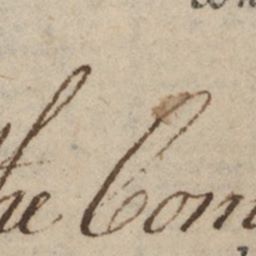 the Com